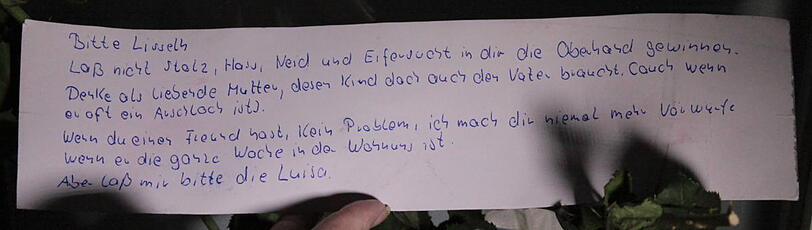 Bitte Lisseth
Laß nicht Stolz, Hass, Neid und Eifersucht in dir die Oberhand gewinnen.
Denke als liebende Mutter, deren Kind doch auch den Vater braucht. (auch wenn
er oft ein Arschloch ist).
Wenn du einen Freund hast, kein Problem, ich mach dir niemal mehr Vorwürfe
wenn er die ganze Woche in der Wohnung ist.
Aber laß mir bitte die Luisa.